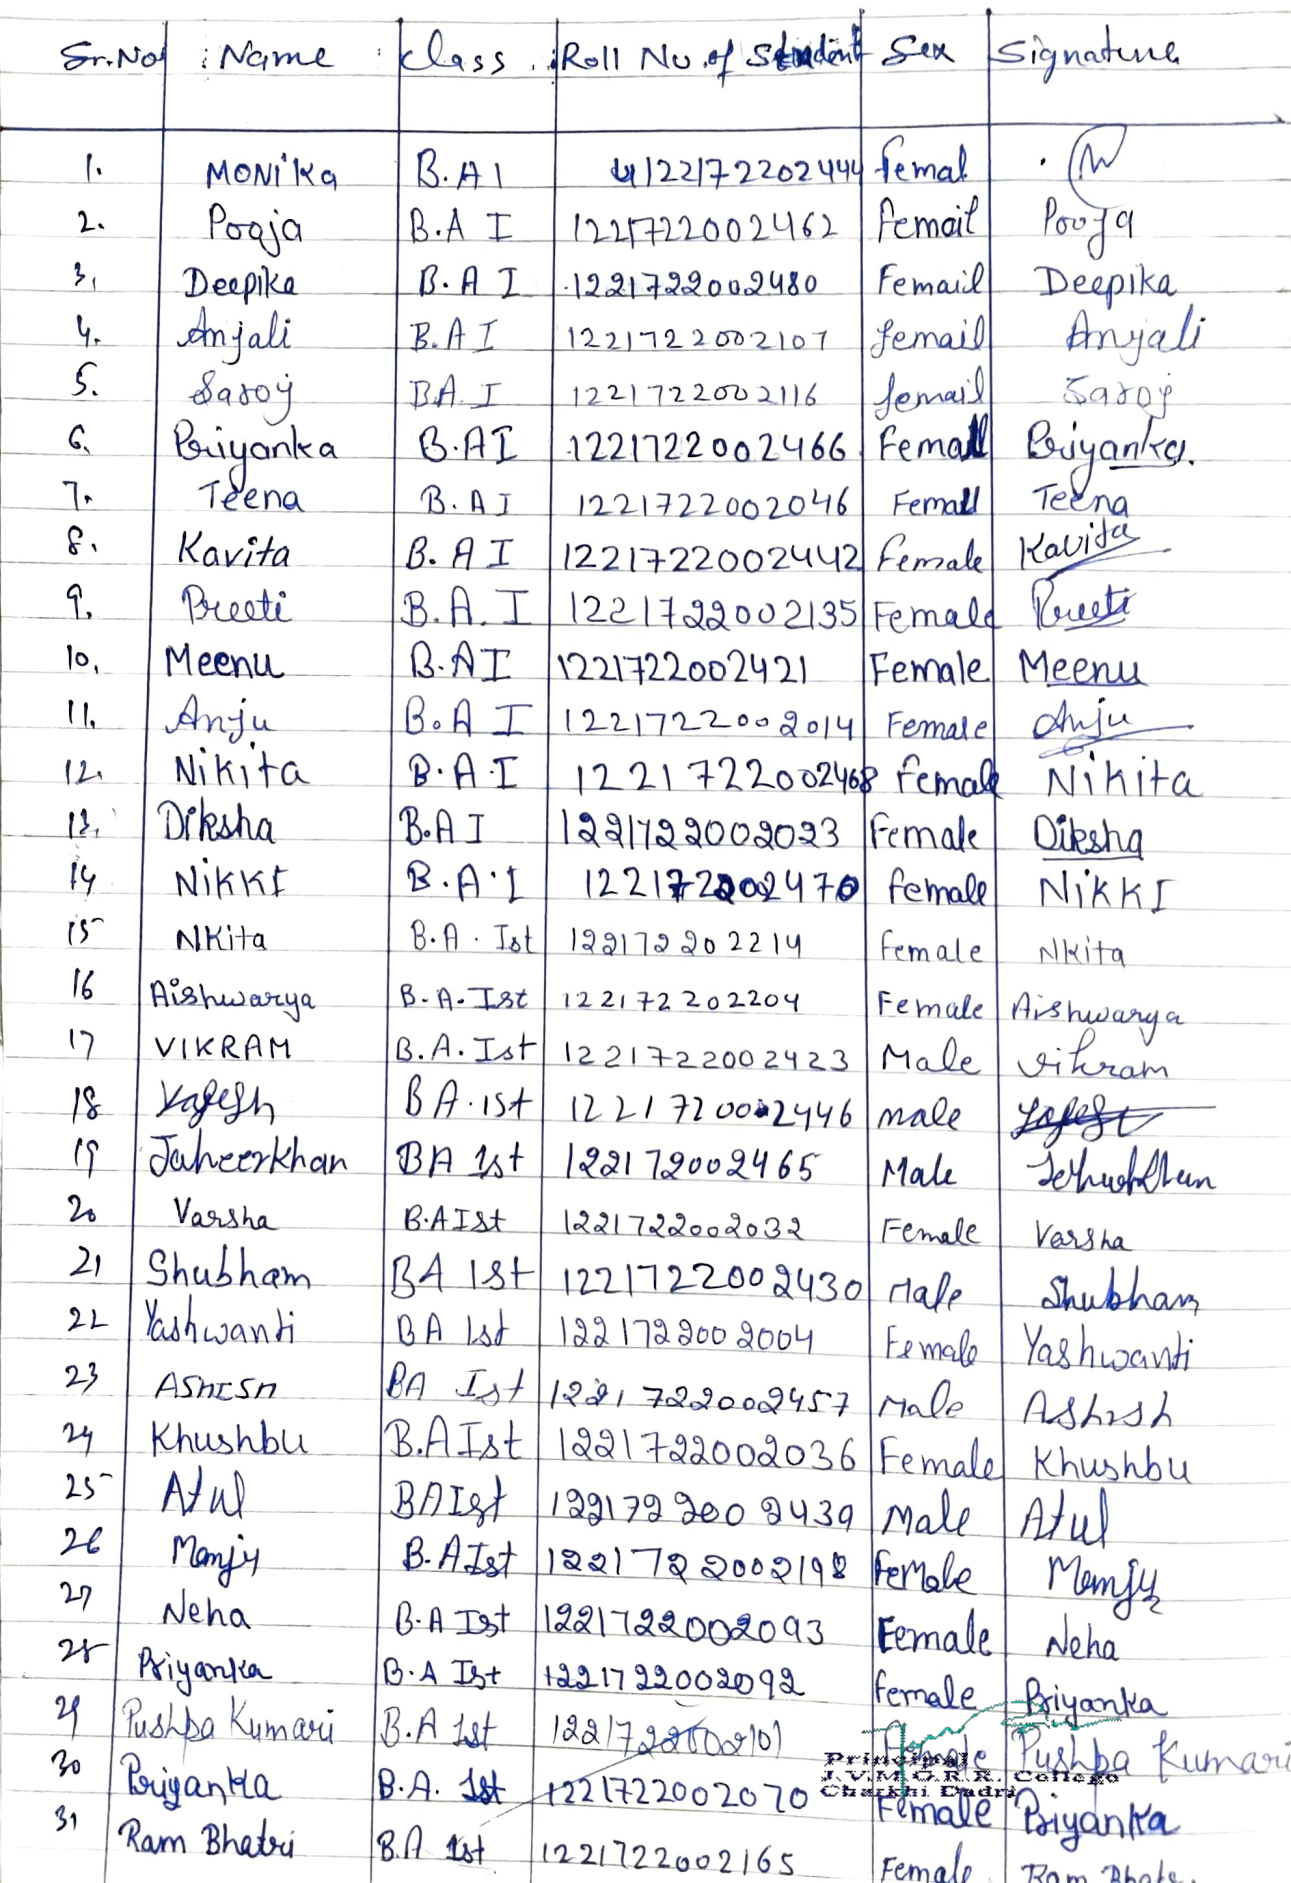 Sr.No Name Class Roll No. of Student Sex Signature
1. MONIKA B.A I 122172202444 Femal
2. Pooja B.A I 1221722002462 Femail Pooja
3. Deepika B.A I 1221722002480 Femail Deepika
4. Anjali B.A I 1221722002107 femail Anjali
5. Saroj B.A. I 1221722002116 femail Saroj
6. Priyanka B.AI 1221722002466 Femall Priyanka
7. Teena B.AI 1221722002046 Femall Teena
8. Kavita B.A I 1221722002442 Female Kavita
9. Preeti B.A. I 1221722002135 Female Preeti
10. Meenu B.AI 1221722002421 Female Meenu
11. Anju B.A I 1221722002014 Female Anju
12. Nikita B.A.I 1221722002468 Female Nikita
13. Diksha B.AI 1221722002023 Female Diksha
14 NIKKI B.A.I 122172202470 female NIKKI
15 NKita B.A. Ist 122172202214 Female NKita
16 Aishwarya B.A.Ist 122172202204 Female Aishwarya
17 VIKRAM B.A.Ist 1221722002423 Male Vikram
18 BA.1st 122172002446 male
19 Jaheerkhan BA 1st 122172002465 Male
20 Varsha B.AISt 1221722002032 Female Varsha
21 Shubham BA 1St 1221722002430 Male Shubham
22 Yashwanti BA 1st 1221722002004 Female Yashwanti
23 ASHISH BA Ist 1221722002457 Male Ashish
24 Khushbu B.AIst 1221722002036 Female Khushbu
25 Atul BAIst 1221722002439 Male Atul
26 B.AIst 1221722002198 Female
27 Neha B.A Ist 1221722002093 Female Neha
28 Priyanka B.A Ist 1221722002092 Female Priyanka
29 Pushpa Kumari B.A 1st 1221722002101 Female Pushpa Kumari
Principal
J.V.M.G.R.R. College
Charkhi Dadri
30 Priyanka B.A. 1st 1221722002070 Female Priyanka
31 Ram Bhatri B.A 1st 1221722002165 Female Ram